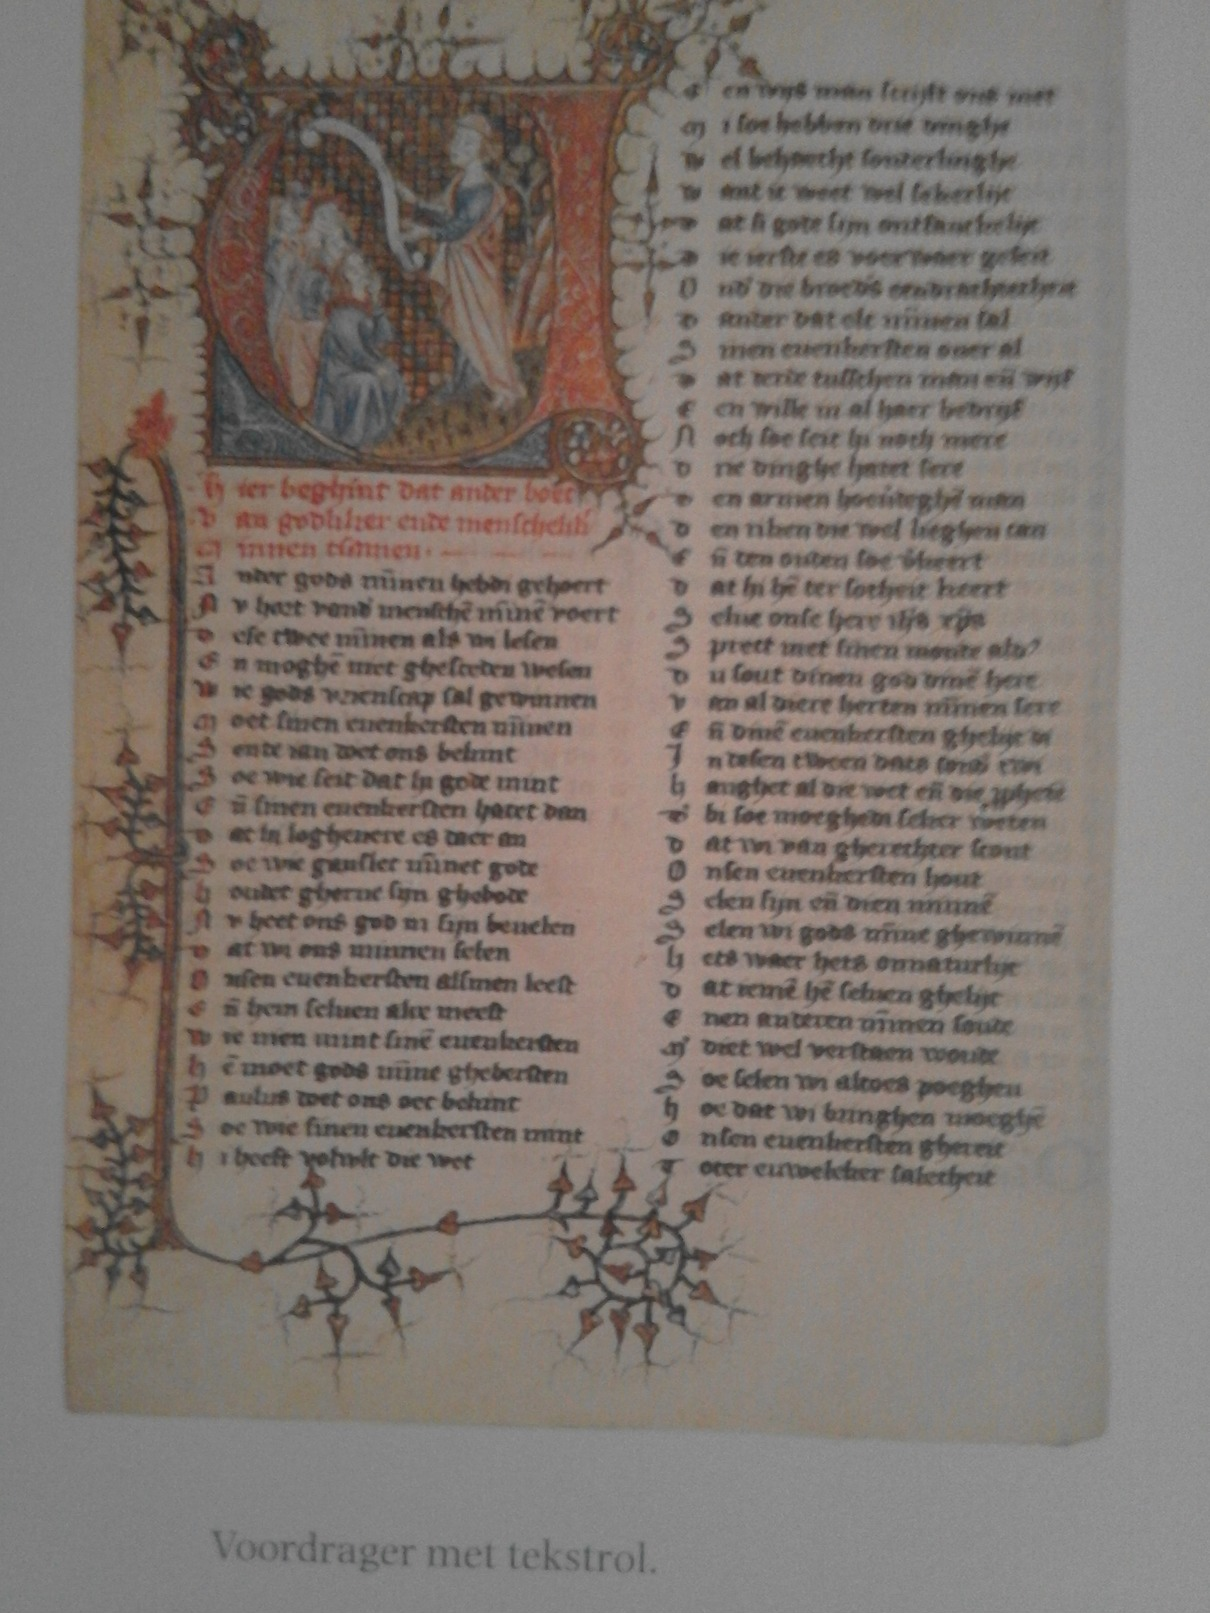 Hier beghint dat ander boec
Van godliker ende menscheliker
Minnen
Onder gods minnen hebdi gehoert
Nv hoet vand mensche mine voert
Dese twee minnen als wi lesen
En moghe niet ghesceden wesen
Wie gods vrienscap sal gewinnen
Moet sinen euenkersten minnen
Sente ian doet ons bekint
Soe wie seit dat hi gode mint
En sinen euenkersten hatet dan
Dat hi loghenere es daer an
Soe wie gansliec minnet gode
Houdet gherne sijn ghebode
Nv heet ons god in sijn beuelen
Dat wi ons minnen selen
Onsen euenkersten alsmen leest
En hem seluen alre meest
Die men mint sine euenkersten
He moet gods mine ghebersten
Paulus doet ons oec bekint
Soe wie sinen euenkersten mint
Hi heeft voluelt die wet
Een wijs man scrijft ons met
Mi soe hebben drie dinghe
Wel behaecht sonderlinghe
Want ic weet wel sekerlijc
Dat si gode sijn ontfanckelijc
Die ierste es voerwaer geseit
Dander dat elc minnen sal
Sinen euenkersten ouer al
Dat derde tusschen man en wijf
Een wille in al haer bedrijf
Noch soe seit hi noch mere
Drie dinghe hatet sere
Den armen man
Den riken die wel lieghen can
En den ouden soe
Dat hi he ter sotheit keert
Selue onse here
Sprect met sinen monde aldus
Du sout dinen god dine here
Van al diere herten minnen sere
En dine euenkersten ghelijc di
In desen tween
Hanghet al die wet en die
Dbi soe moeghedi seker weten
Dat wi van gherechter scout
Onsen euenkersten hout
Selen sijn en dien minne
Selen wi gods mine ghewinne
Hets waer hets onnaturlijc
Dat ieme he seluen ghelijc
Enen anderen minnen soude
Diet wel verstaen woude
Soe selen wi altoes poeghen
Hoe dat wi bringhen moeghe
Onsen euenkersten ghereit
Toter euwelcker salecheit
Voordrager met tekstrol.